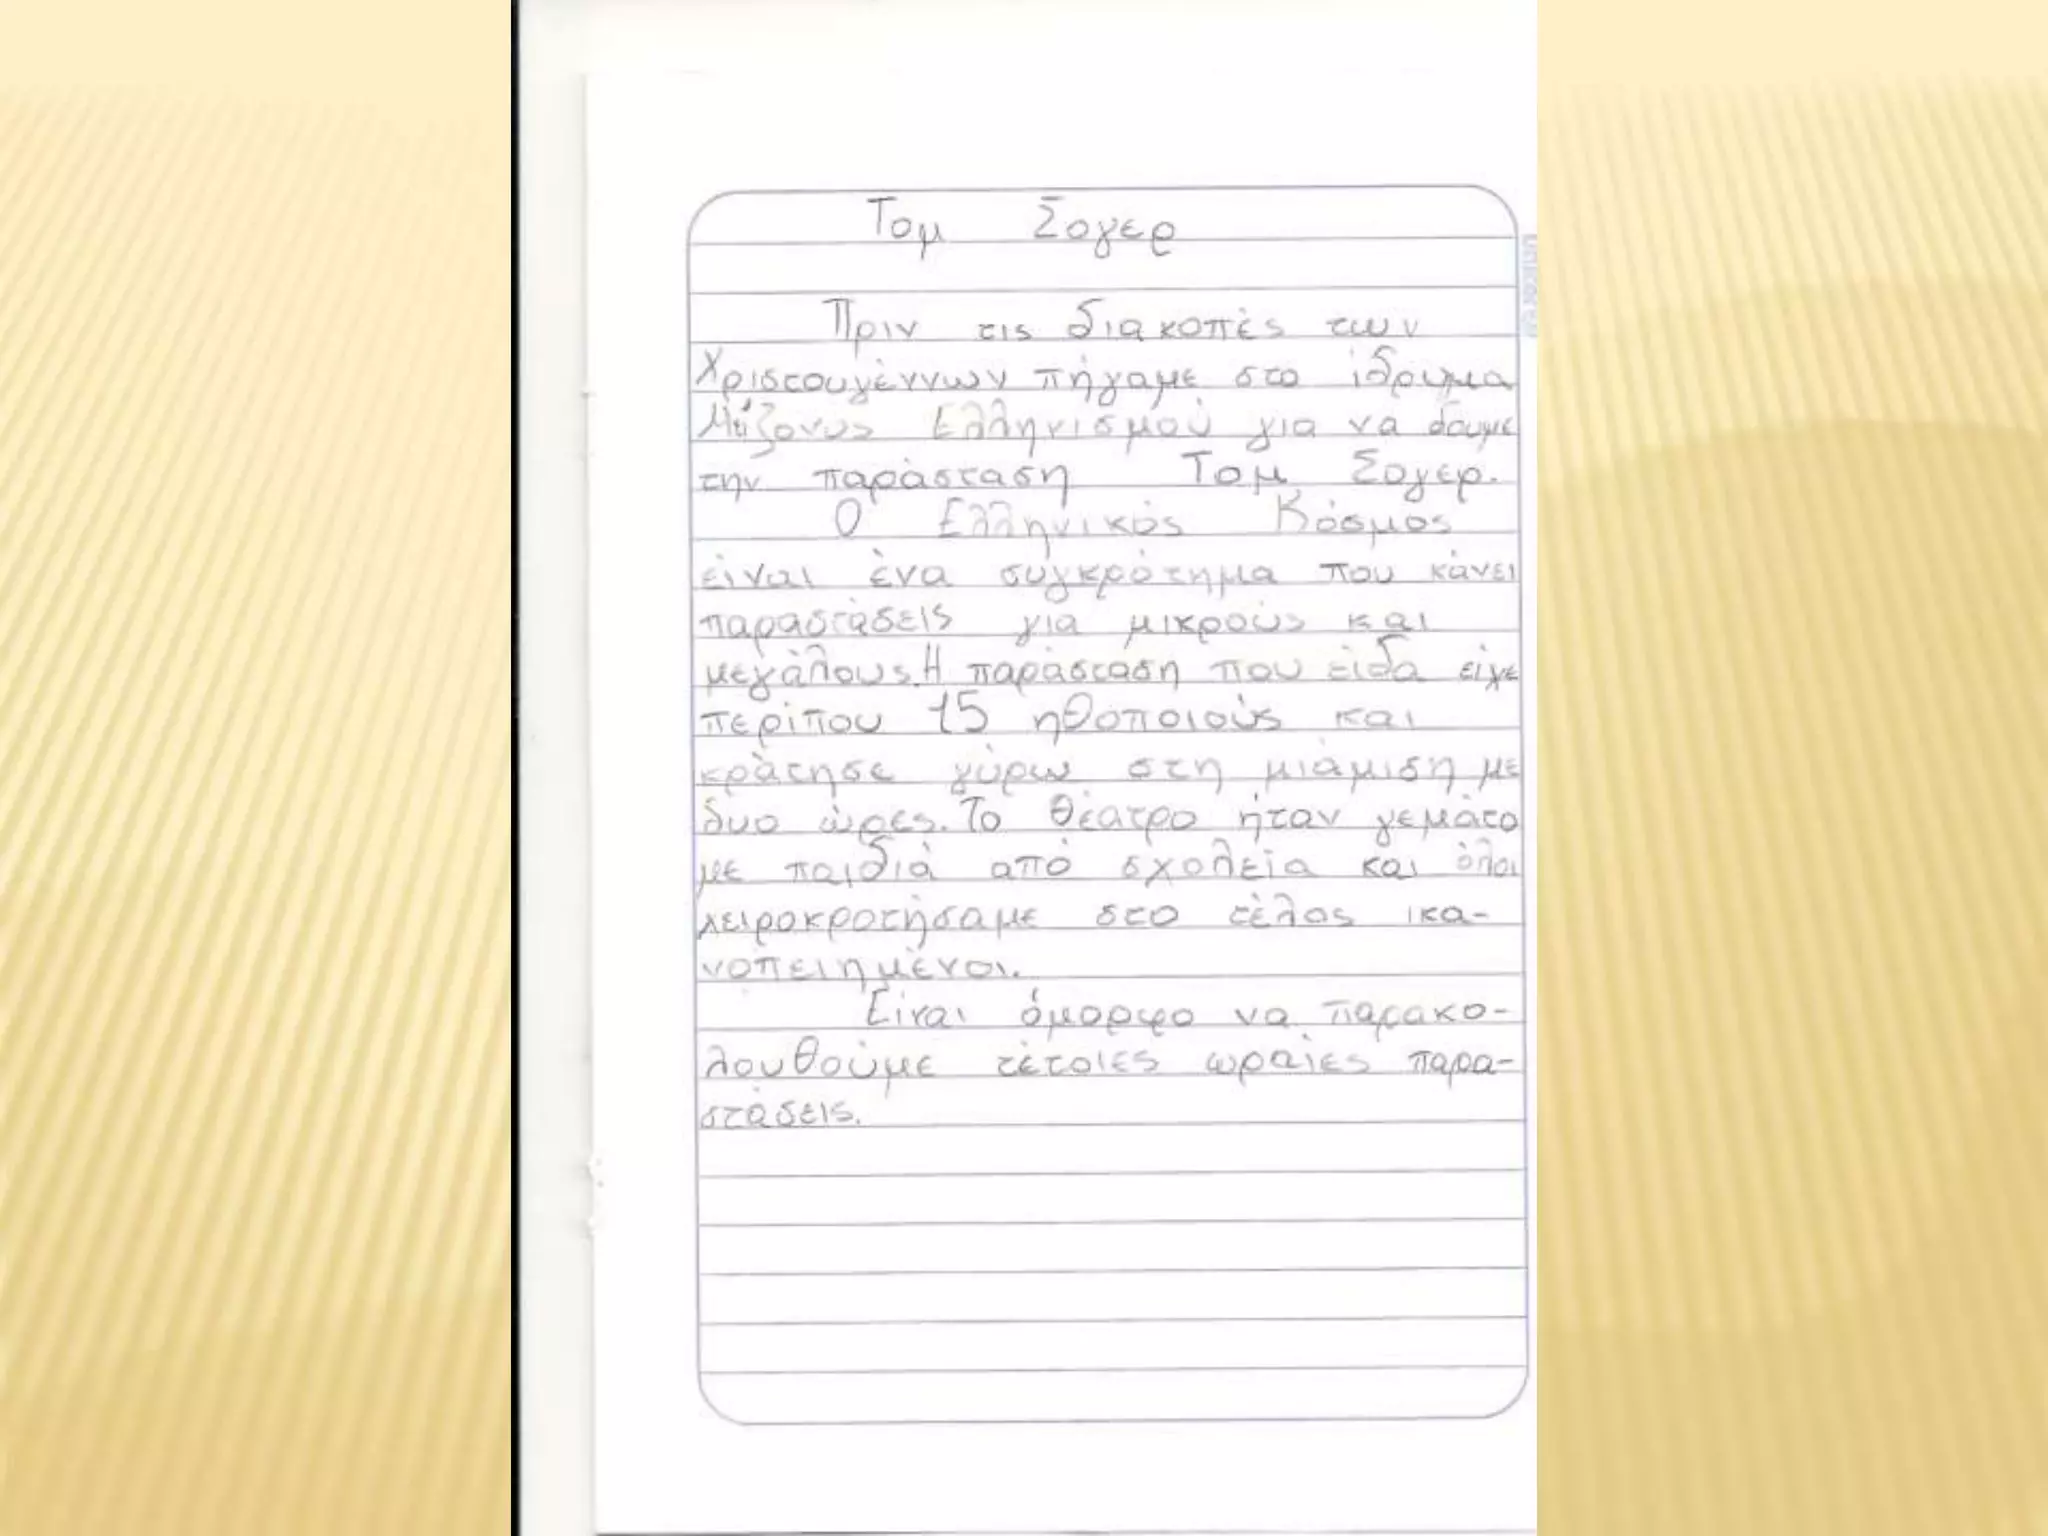 Τομ Σογερ
Πριν τις διακοπές των
Χριστουγέννων πήγαμε στο ίδρυμα
Μείζονος Ελληνισμού για να δούμε
την παράσταση Τομ Σογερ.
Ο Ελληνικός Κόσμος
είναι ένα συγκρότημα που κάνει
παραστάσεις για μικρούς και
μεγάλους. Η παράσταση που είδα είχε
περίπου 15 ηθοποιούς και
κράτησε γύρω στη μιάμιση με
δυο ώρες. Το θέατρο ήταν γεμάτο
με παιδιά από σχολεία και όλοι
χειροκροτήσαμε στο τέλος ικα-
νοπειημένοι.
Είναι όμορφο να παρακο-
λουθούμε τέτοιες ωραίες παρα-
στάσεις.